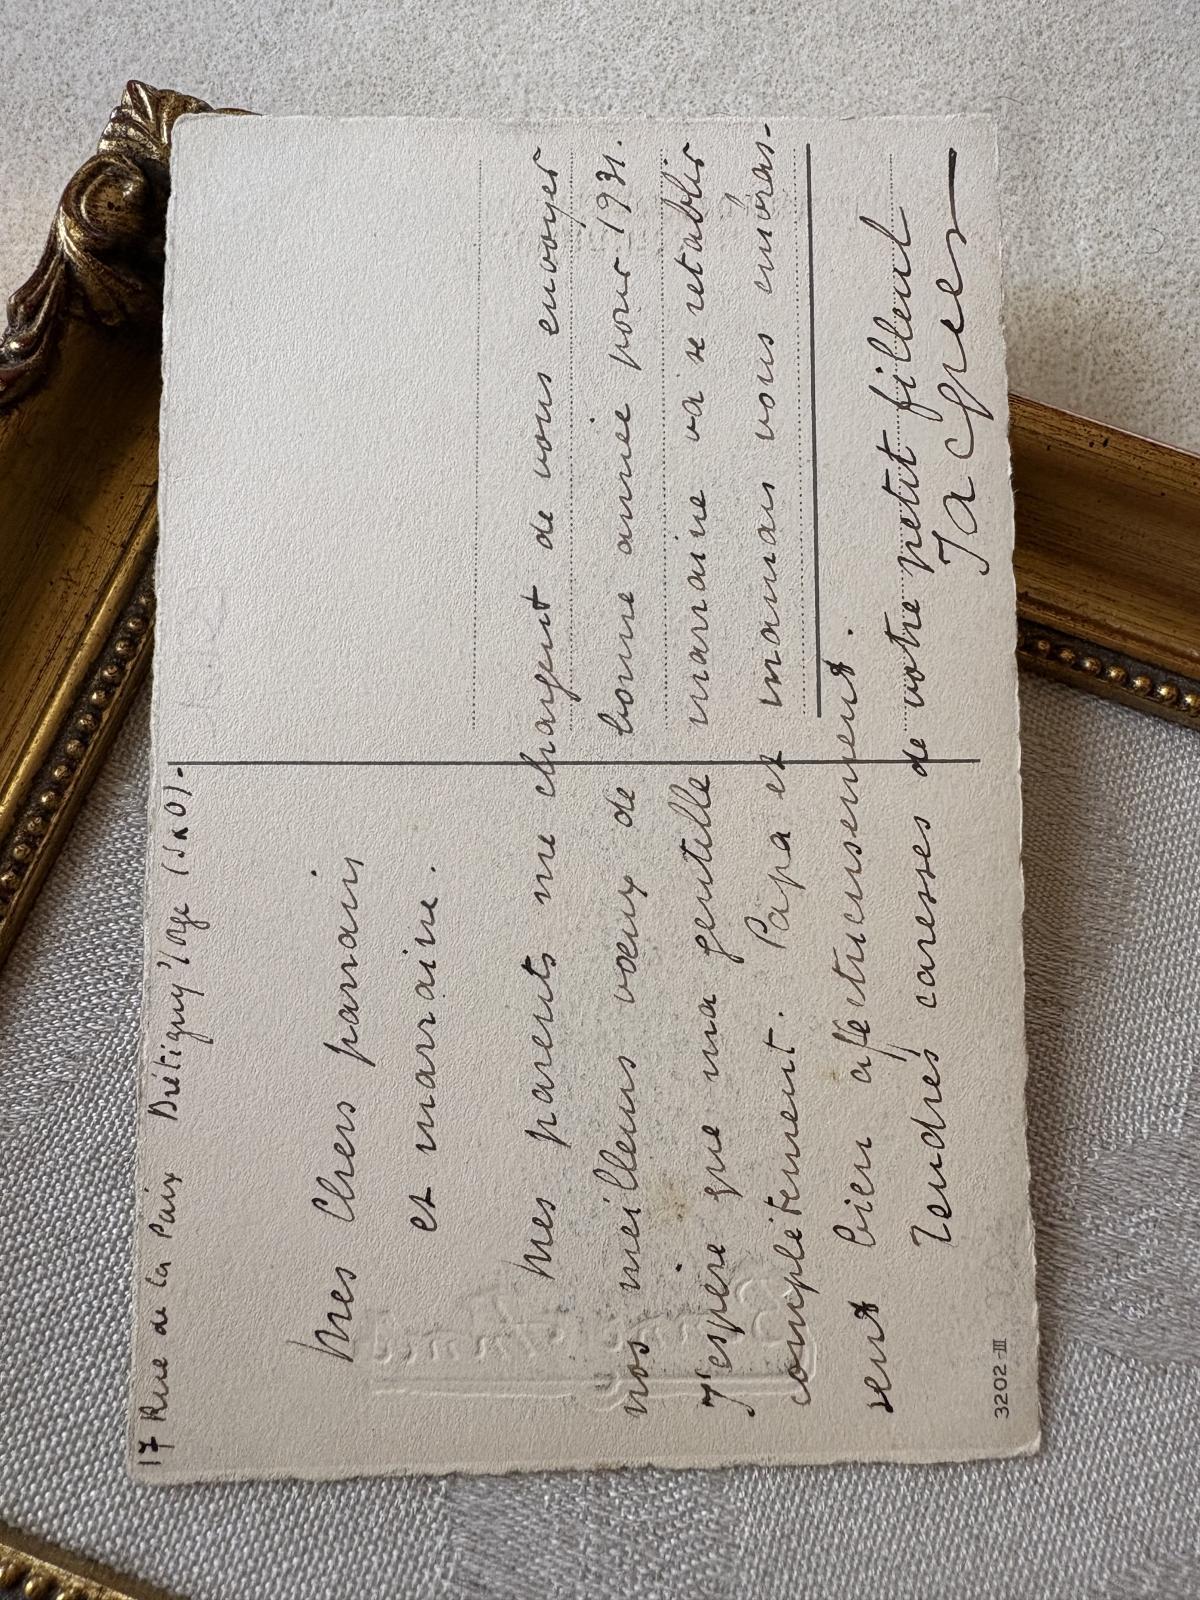 17 Rue de la Paix Brétigny s/orge (S&O).-
Mes Chers parrain
et marraine.
Mes parents me chargent de vous envoyer
nos meilleurs vœux de bonne année pour 1931.
J'espère que ma gentille marraine va se rétablir
complètement. Papa et maman vous embras-
sent bien affectueusement.
Tendres caresses de votre petit filleul
Jacques
3202-III
Bonne Année